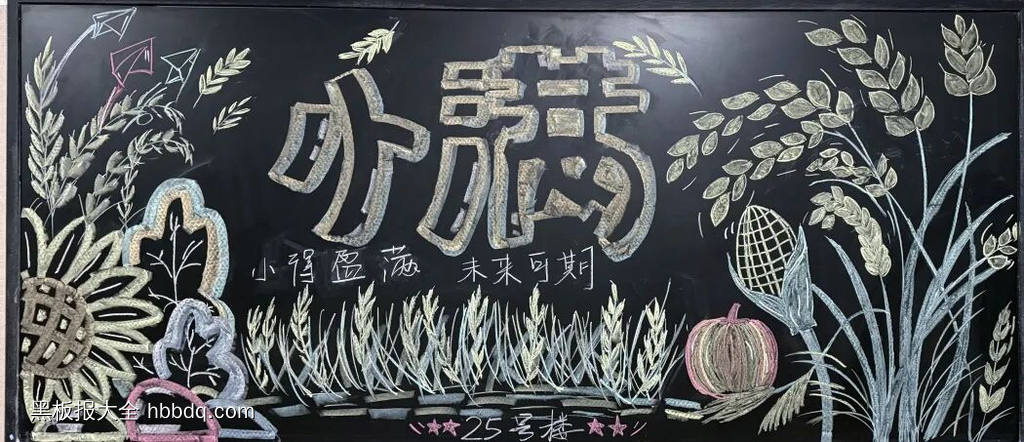 小满
小得盈满 未来可期
25号楼
黑板报大全 hbbdq.com